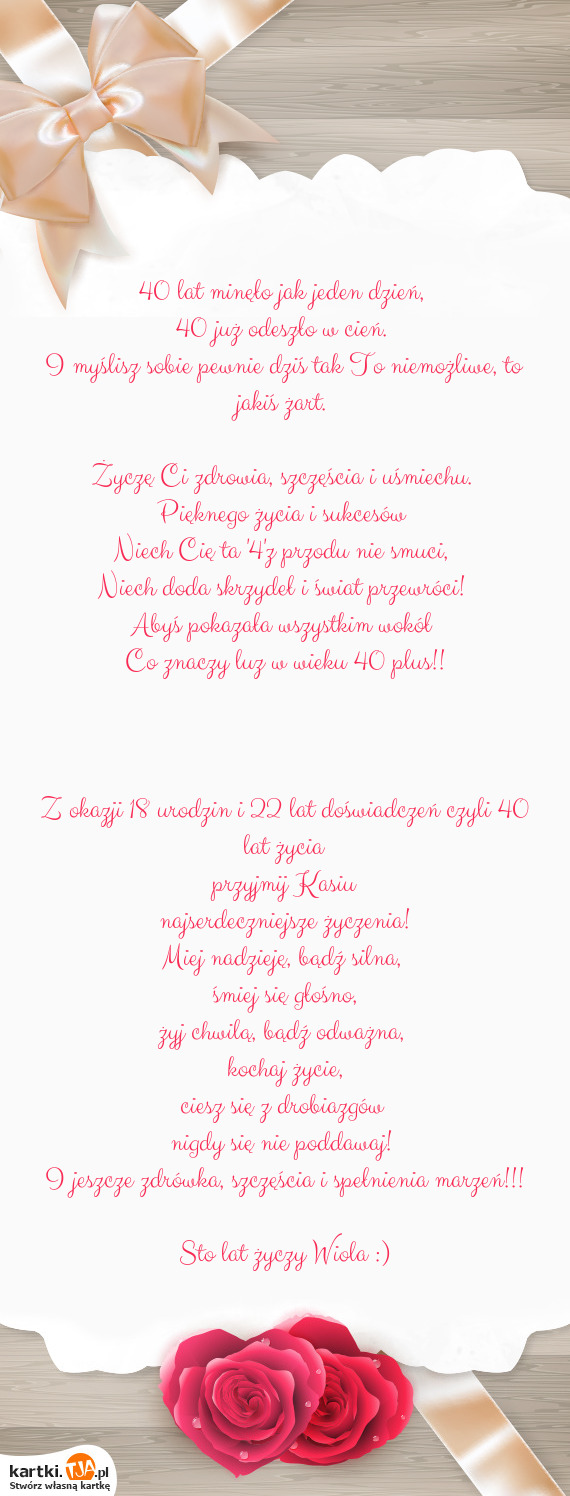 40 lat minęło jak jeden dzień,
40 już odeszło w cień.
I myślisz sobie pewnie dziś tak To niemożliwe, to
jakiś żart.
Życzę Ci zdrowia, szczęścia i uśmiechu.
Pięknego życia i sukcesów
Niech Cię ta '4'z przodu nie smuci,
Niech doda skrzydeł i świat przewróci!
Abyś pokazała wszystkim wokół
Co znaczy luz w wieku 40 plus!!
Z okazji 18 urodzin i 22 lat doświadczeń czyli 40
lat życia
przyjmij Kasiu
najserdeczniejsze życzenia!
Miej nadzieję, bądź silna,
śmiej się głośno,
żyj chwilą, bądź odważna,
kochaj życie,
ciesz się z drobiazgów
nigdy się nie poddawaj!
I jeszcze zdrówka, szczęścia i spełnienia marzeń!!!
Sto lat życzy Wiola :)
kartki.TJA.pl
Stwórz własną kartkę